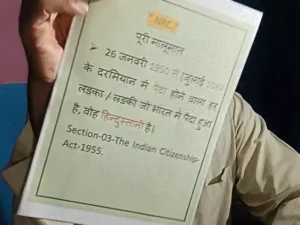 "NRC"
पूरी मालूमात
➤ 26 जनवरी 1950 से 1 जुलाई 1987
के दरमियान में पैदा होने वाला हर
लड़का / लड़की जो भारत में पैदा हुआ
है, वोह हिन्दुस्तानी है।
Section-03-The Indian Citizenship-
Act-1955.